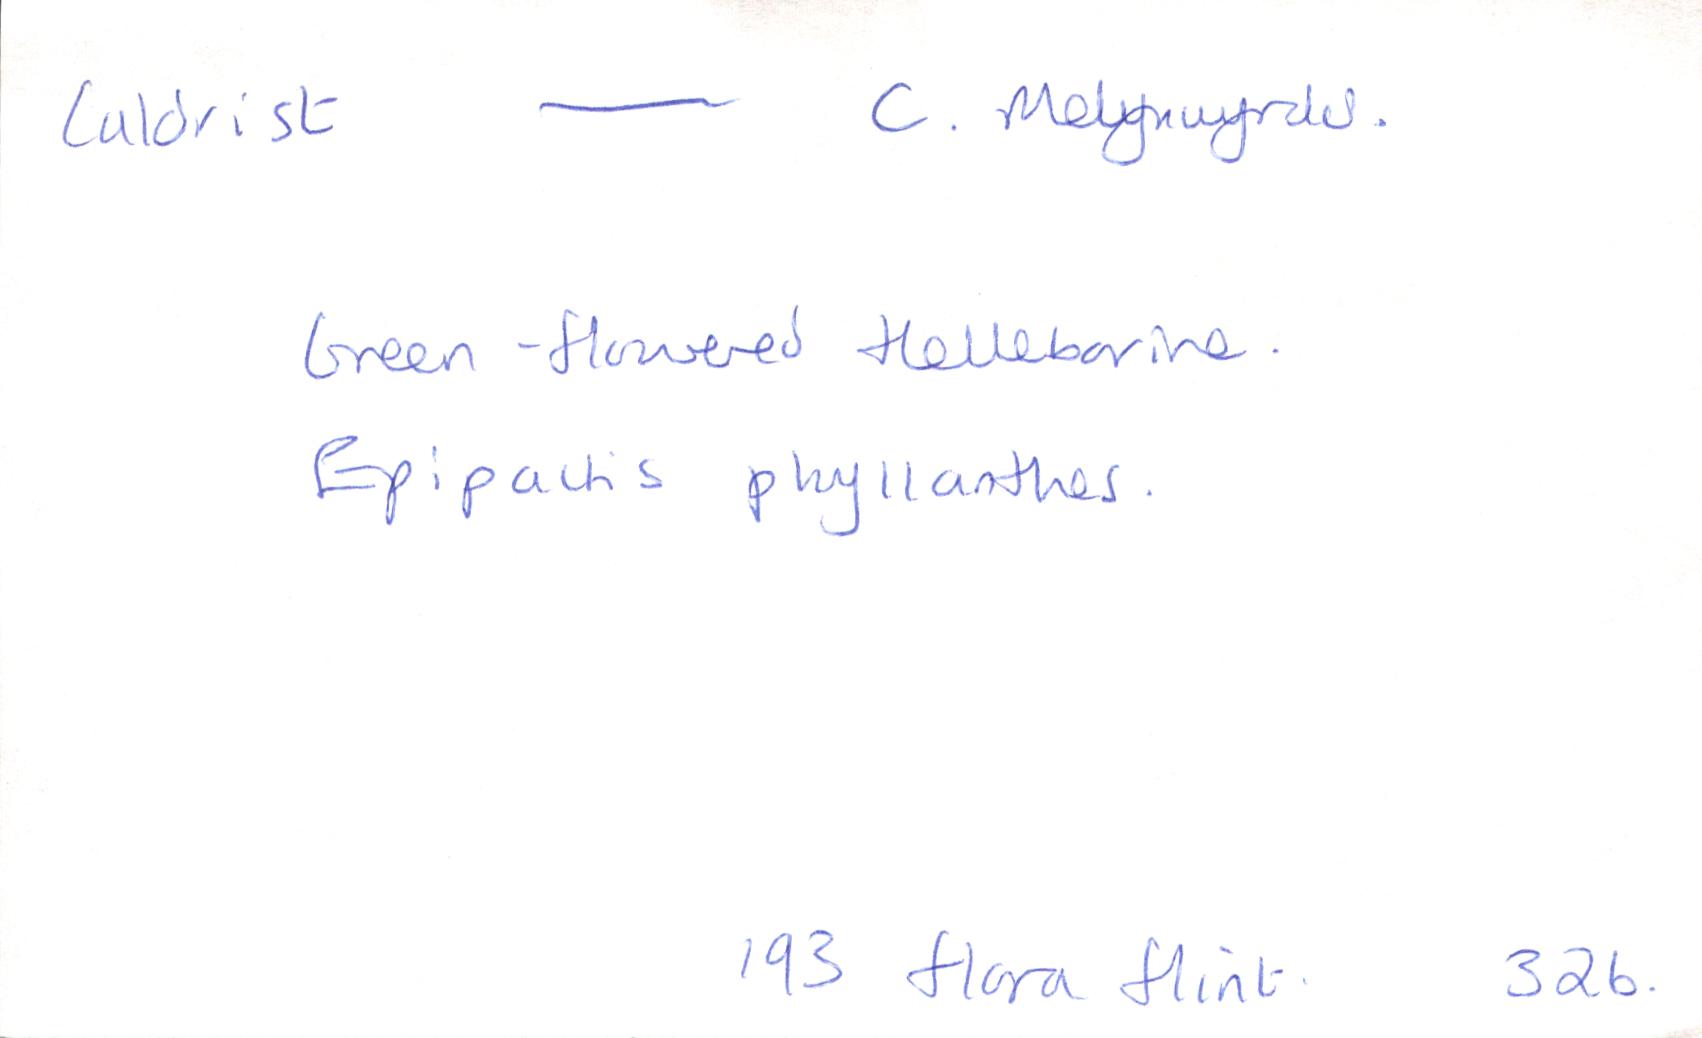 Caldrist — C. Melynwyrdd.
Green-flowered Helleborine.
Epipactis phyllanthes.
193 flora flint. 326.